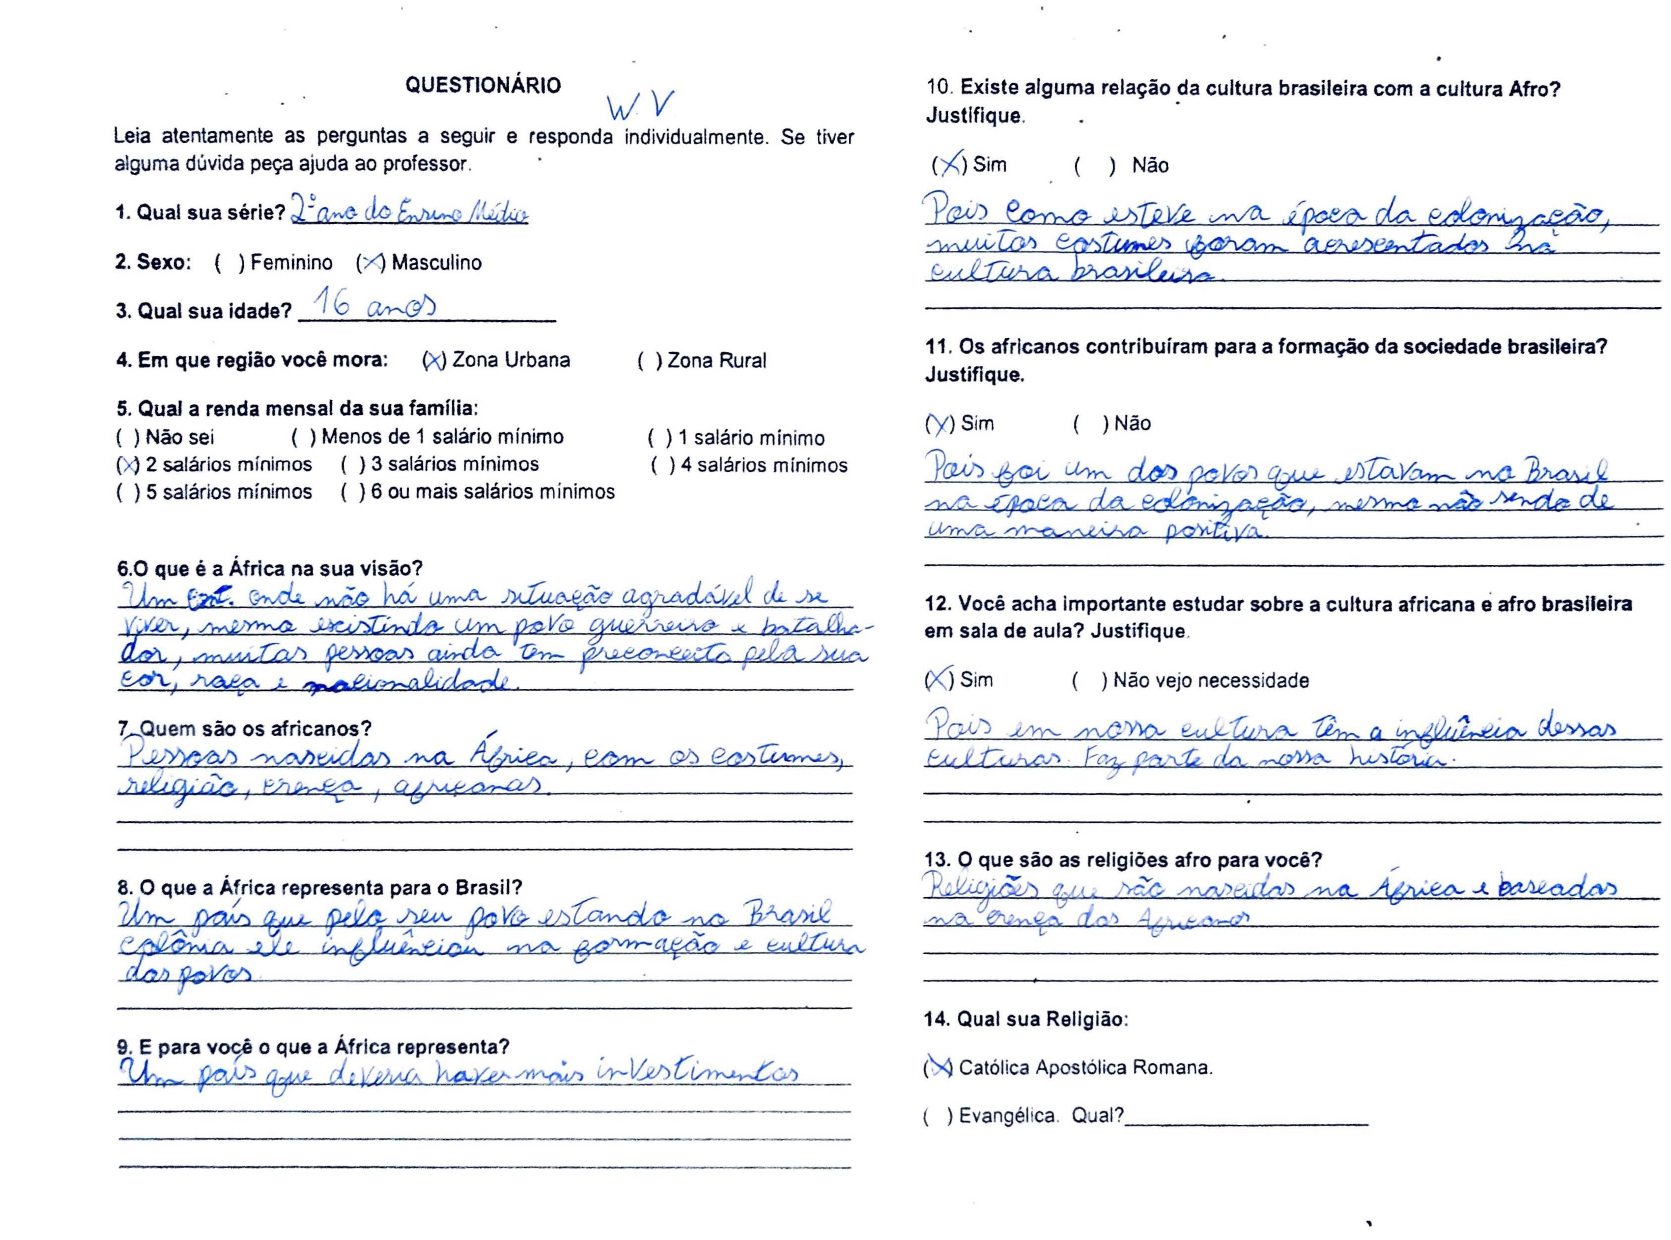 QUESTIONÁRIO
W.V
Leia atentamente as perguntas a seguir e responda individualmente. Se tiver
alguma dúvida peça ajuda ao professor.
1. Qual sua série? 2º ano do Ensino Médio
2. Sexo: ( ) Feminino (X) Masculino
3. Qual sua idade? 16 anos
4. Em que região você mora: (X) Zona Urbana ( ) Zona Rural
5. Qual a renda mensal da sua família:
( ) Não sei ( ) Menos de 1 salário mínimo ( ) 1 salário mínimo
(X) 2 salários mínimos ( ) 3 salários mínimos ( ) 4 salários mínimos
( ) 5 salários mínimos ( ) 6 ou mais salários mínimos
6.O que é a África na sua visão?
Um onde não há uma situação agradável de se
viver, mesmo existindo um povo guerreiro e batalha-
dor, muitas pessoas ainda tem preconceito pela sua
cor, raça e nacionalidade.
7. Quem são os africanos?
Pessoas nascidas na África, com os costumes,
religião, crença, africanas.
8. O que a África representa para o Brasil?
Um país que pelo seu povo estando no Brasil
colônia ele influênciou na formação e cultura
dos povos
9. E para você o que a África representa?
Um país que deveria haver mais investimentos
10. Existe alguma relação da cultura brasileira com a cultura Afro?
Justifique.
(X) Sim ( ) Não
Pois como esteve na época da colonização,
muitos costumes foram acrescentados na
cultura brasileira.
11. Os africanos contribuíram para a formação da sociedade brasileira?
Justifique.
(X) Sim ( ) Não
Pois foi um dos povos que estavam no Brasil
na época da colonização, mesmo não sendo de
uma maneira positiva.
12. Você acha importante estudar sobre a cultura africana e afro brasileira
em sala de aula? Justifique.
(X) Sim ( ) Não vejo necessidade
Pois em nossa cultura têm a influência dessas
culturas. Faz parte da nossa história.
13. O que são as religiões afro para você?
Religiões que são nascidas na África e baseadas
na crença dos Africanos
14. Qual sua Religião:
(X) Católica Apostólica Romana.
( ) Evangélica. Qual?